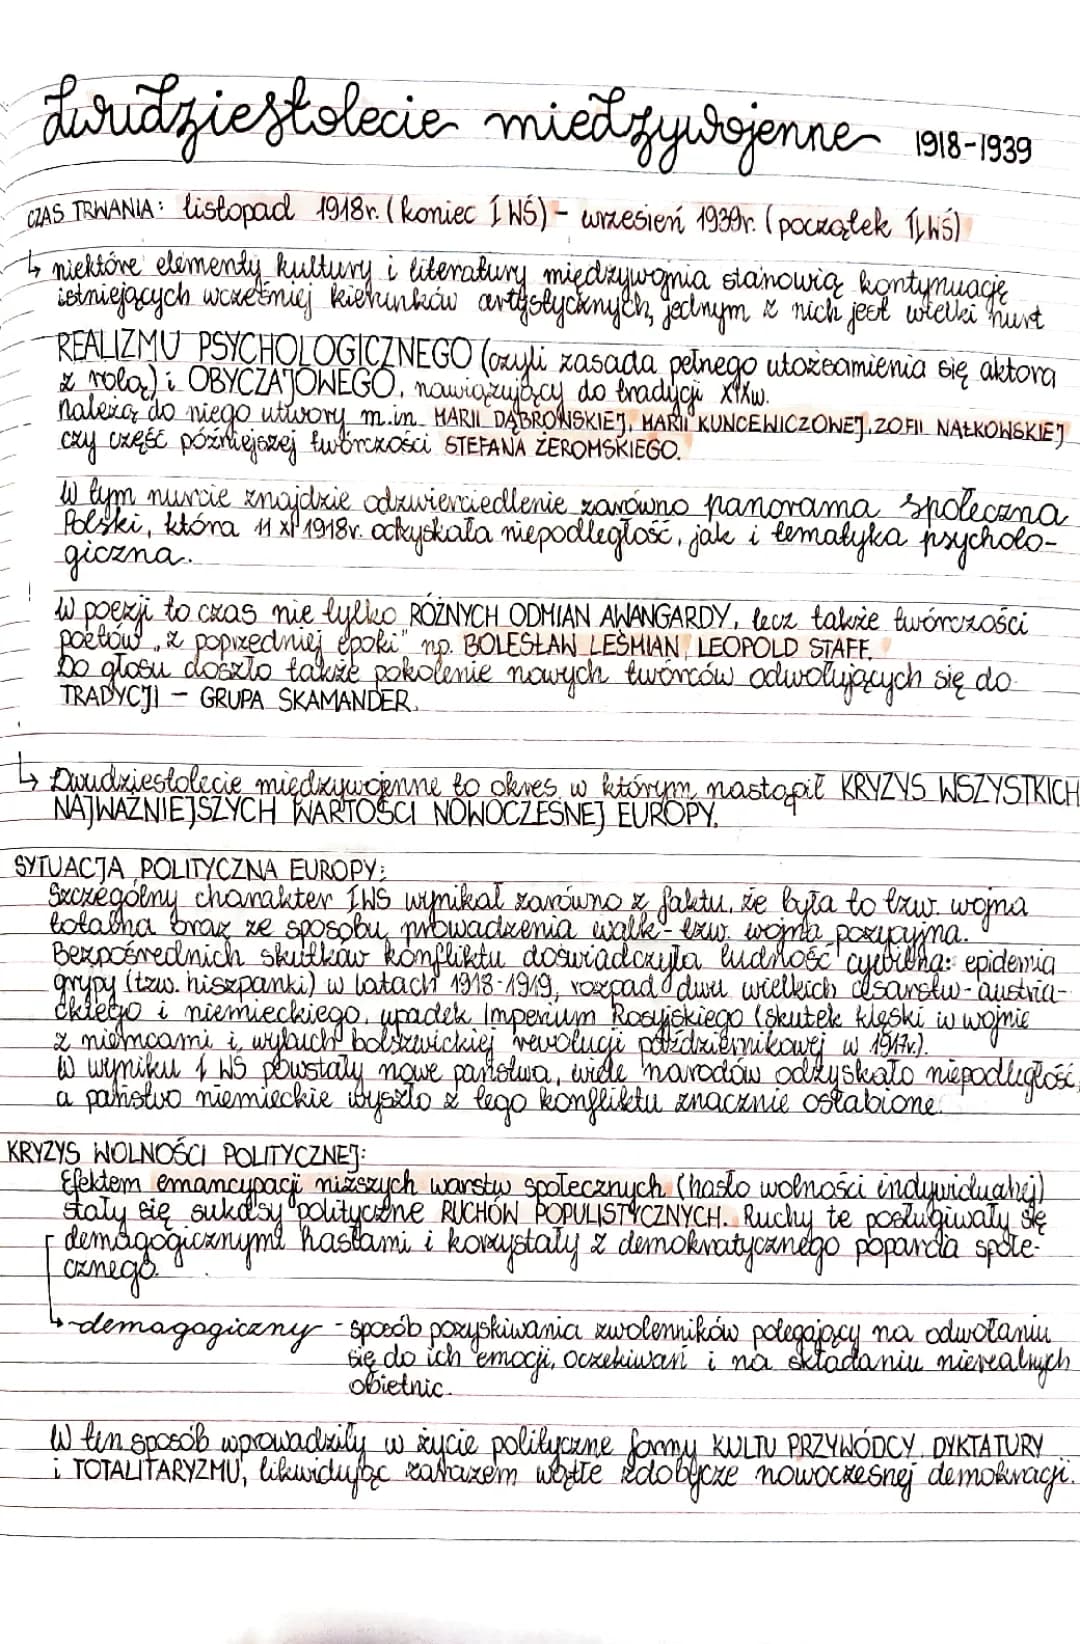 Dwudziestolecie międzywojenne 1918-1939
CZAS TRWANIA: listopad 1918r. (koniec I WŚ) - wrzesień 1939r. (początek II WŚ)
↳ niektóre elementy kultury i literatury międzywojnia stanowią kontynuację
istniejących wcześniej kierunków artystycznych, jednym z nich jest wielki nurt
REALIZMU PSYCHOLOGICZNEGO (czyli zasada pełnego utożsamienia się aktora
z rolą) i OBYCZAJOWEGO, nawiązujący do tradycji XIXw.
Należą do niego utwory m.in. MARII DĄBROWSKIEJ, MARII KUNCEWICZOWEJ, ZOFII NAŁKOWSKIEJ
czy część późniejszej twórczości STEFANA ŻEROMSKIEGO.
W tym nurcie znajdzie odzwierciedlenie zarówno panorama społeczna
Polski, która 11 XI 1918r. odzyskała niepodległość, jak i tematyka psycholo-
giczna.
W poezji to czas nie tylko RÓŻNYCH ODMIAN AWANGARDY, lecz także twórczości
poetów „z poprzedniej epoki" np. BOLESŁAW LEŚMIAN, LEOPOLD STAFF.
Do głosu doszło także pokolenie nowych twórców odwołujących się do
TRADYCJI - GRUPA SKAMANDER.
↳ Dwudziestolecie międzywojenne to okres, w którym nastąpił KRYZYS WSZYSTKICH
NAJWAŻNIEJSZYCH WARTOŚCI NOWOCZESNEJ EUROPY.
SYTUACJA POLITYCZNA EUROPY:
Szczególny charakter IWŚ wynikał zarówno z faktu, że była to tzw. wojna
totalna oraz ze sposobu prowadzenia walk - tzw. wojna pozycyjna.
Bezpośrednich skutków konfliktu doświadczyła ludność cywilna: epidemia
grypy (tzw. hiszpanki) w latach 1918-1919, rozpad dwu wielkich cesarstw - austria-
ckiego i niemieckiego, upadek Imperium Rosyjskiego (skutek klęski w wojnie
z niemcami i wybuch bolszewickiej rewolucji październikowej w 1917r).
W wyniku I WŚ powstały nowe państwa, wiele narodów odzyskało niepodległość,
a państwo niemieckie wyszło z tego konfliktu znacznie osłabione.
KRYZYS WOLNOŚCI POLITYCZNEJ:
Efektem emancypacji niższych warstw społecznych (hasło wolności indywidualnej)
stały się sukcesy polityczne RUCHÓW POPULISTYCZNYCH. Ruchy te posługiwały się
demagogicznymi hasłami i korzystały z demokratycznego poparcia społe-
cznego.
↳ demagogiczny - sposób pozyskiwania zwolenników polegający na odwołaniu
się do ich emocji, oczekiwań i na składaniu nierealnych
obietnic.
W ten sposób wprowadziły w życie polityczne formy KULTU PRZYWÓDCY, DYKTATURY
i TOTALITARYZMU, likwidując zarazem wątłe zdobycze nowoczesnej demokracji.